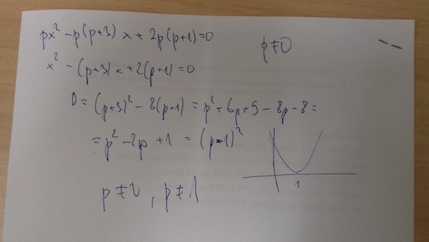 px² - p(p+3)x + 2p(p+1) = 0
p ≠ 0
x² - (p+3)x + 2(p+1) = 0
D = (p+3)² - 8(p+1) = p² + 6p + 9 - 8p - 8 =
= p² - 2p + 1 = (p-1)²
1
p ≠ 0, p ≠ 1